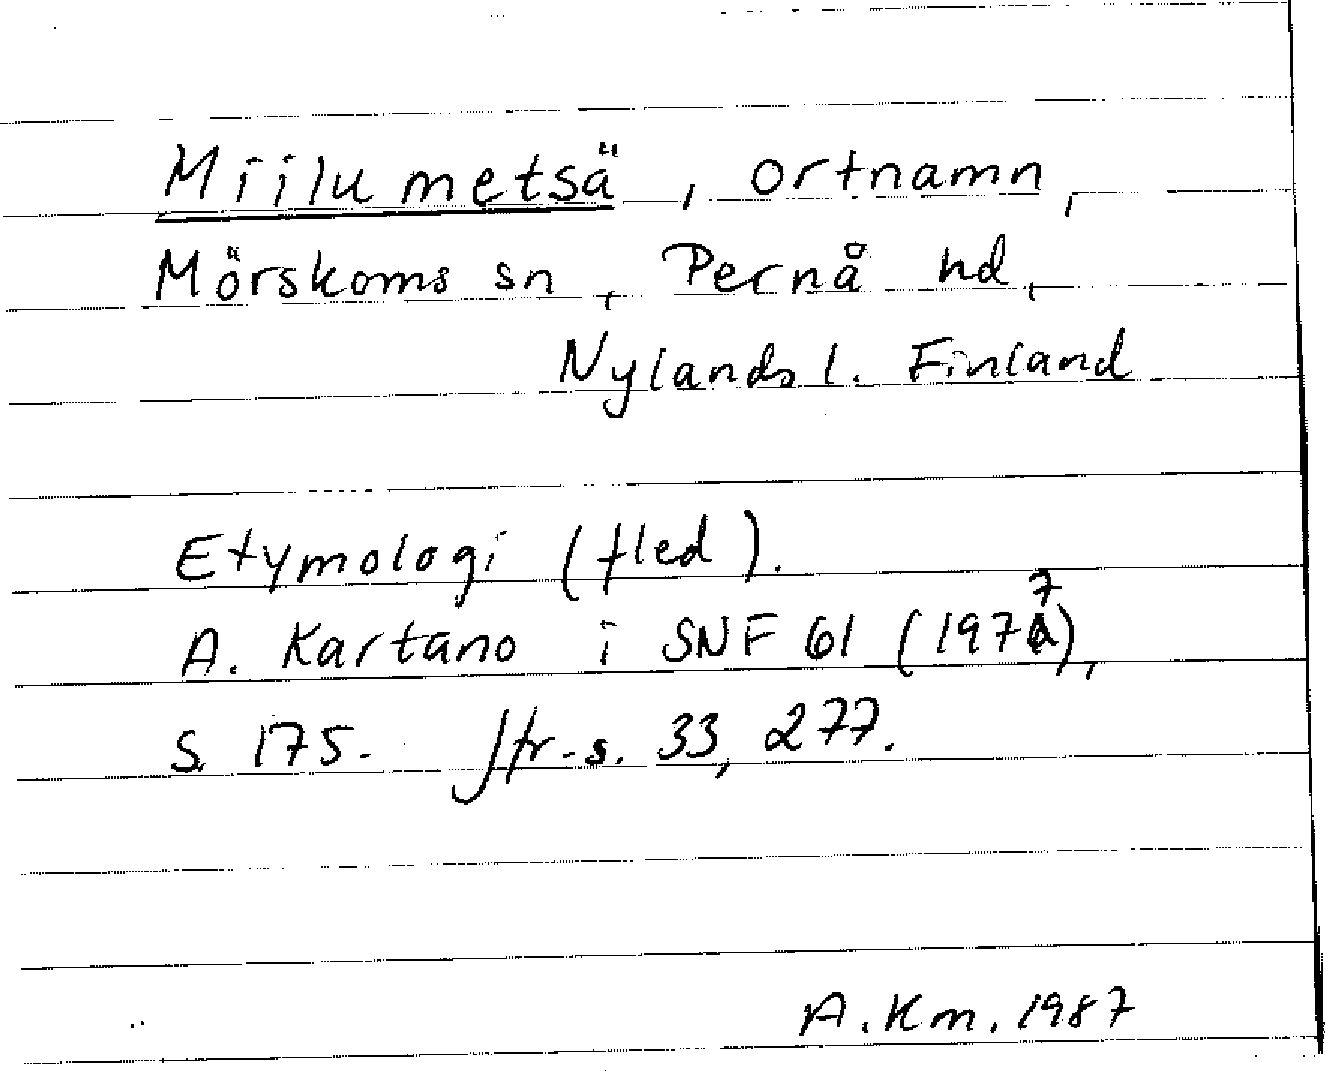 Miilumetsä, ortnamn,
Mörskoms sn, Pernå hd,
Nylands l. Finland
Etymologi (fled).
A. Kartano i SNF 61 (1977),
s. 175. Jfr s. 33, 277.
A. Km. 1987